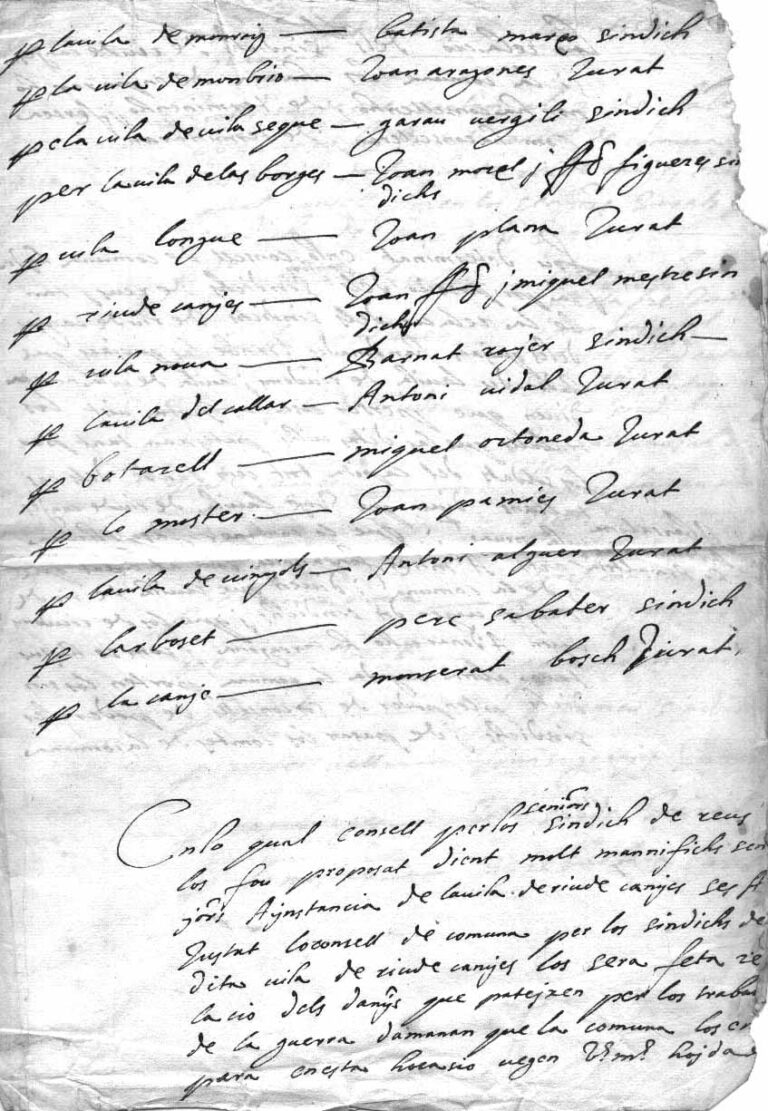 p la vila de monroig — batista março sindich
p la vila de monbrio — Joan aragones Jurat
p la vila de vila seque — garau vergili sindich
per la vila de las borges — Joan morel j ffc figueres sin
dichs
p vila longue — Joan plana Jurat
p riude canjes — Joan ffc j miquel mestre sin
dichs
p vila nova — Barnat rojer sindich —
p la vila del callar — Antoni vidal Jurat
p botarell — miquel ortoneda Jurat
p lo moster — Joan pamies Jurat
p la vila de vinjols — Antoni alguer Jurat
p larboset — pere sabater sindich
p la canje — monserat bosch Jurat
seniors
Enlo qual consell per los sindich de reus
los fou proposat dient molt mannifichs sen
jors Aynstancia de la vila de riude canjes ses A
Justat lo consell de comuna per los sindichs de
dita vila de riude canjes los sera feta re
lacio dels danys que patejxen per los traba
de la guerra damanan que la comuna los en
para en esta hocasio vegen vs ms hojda